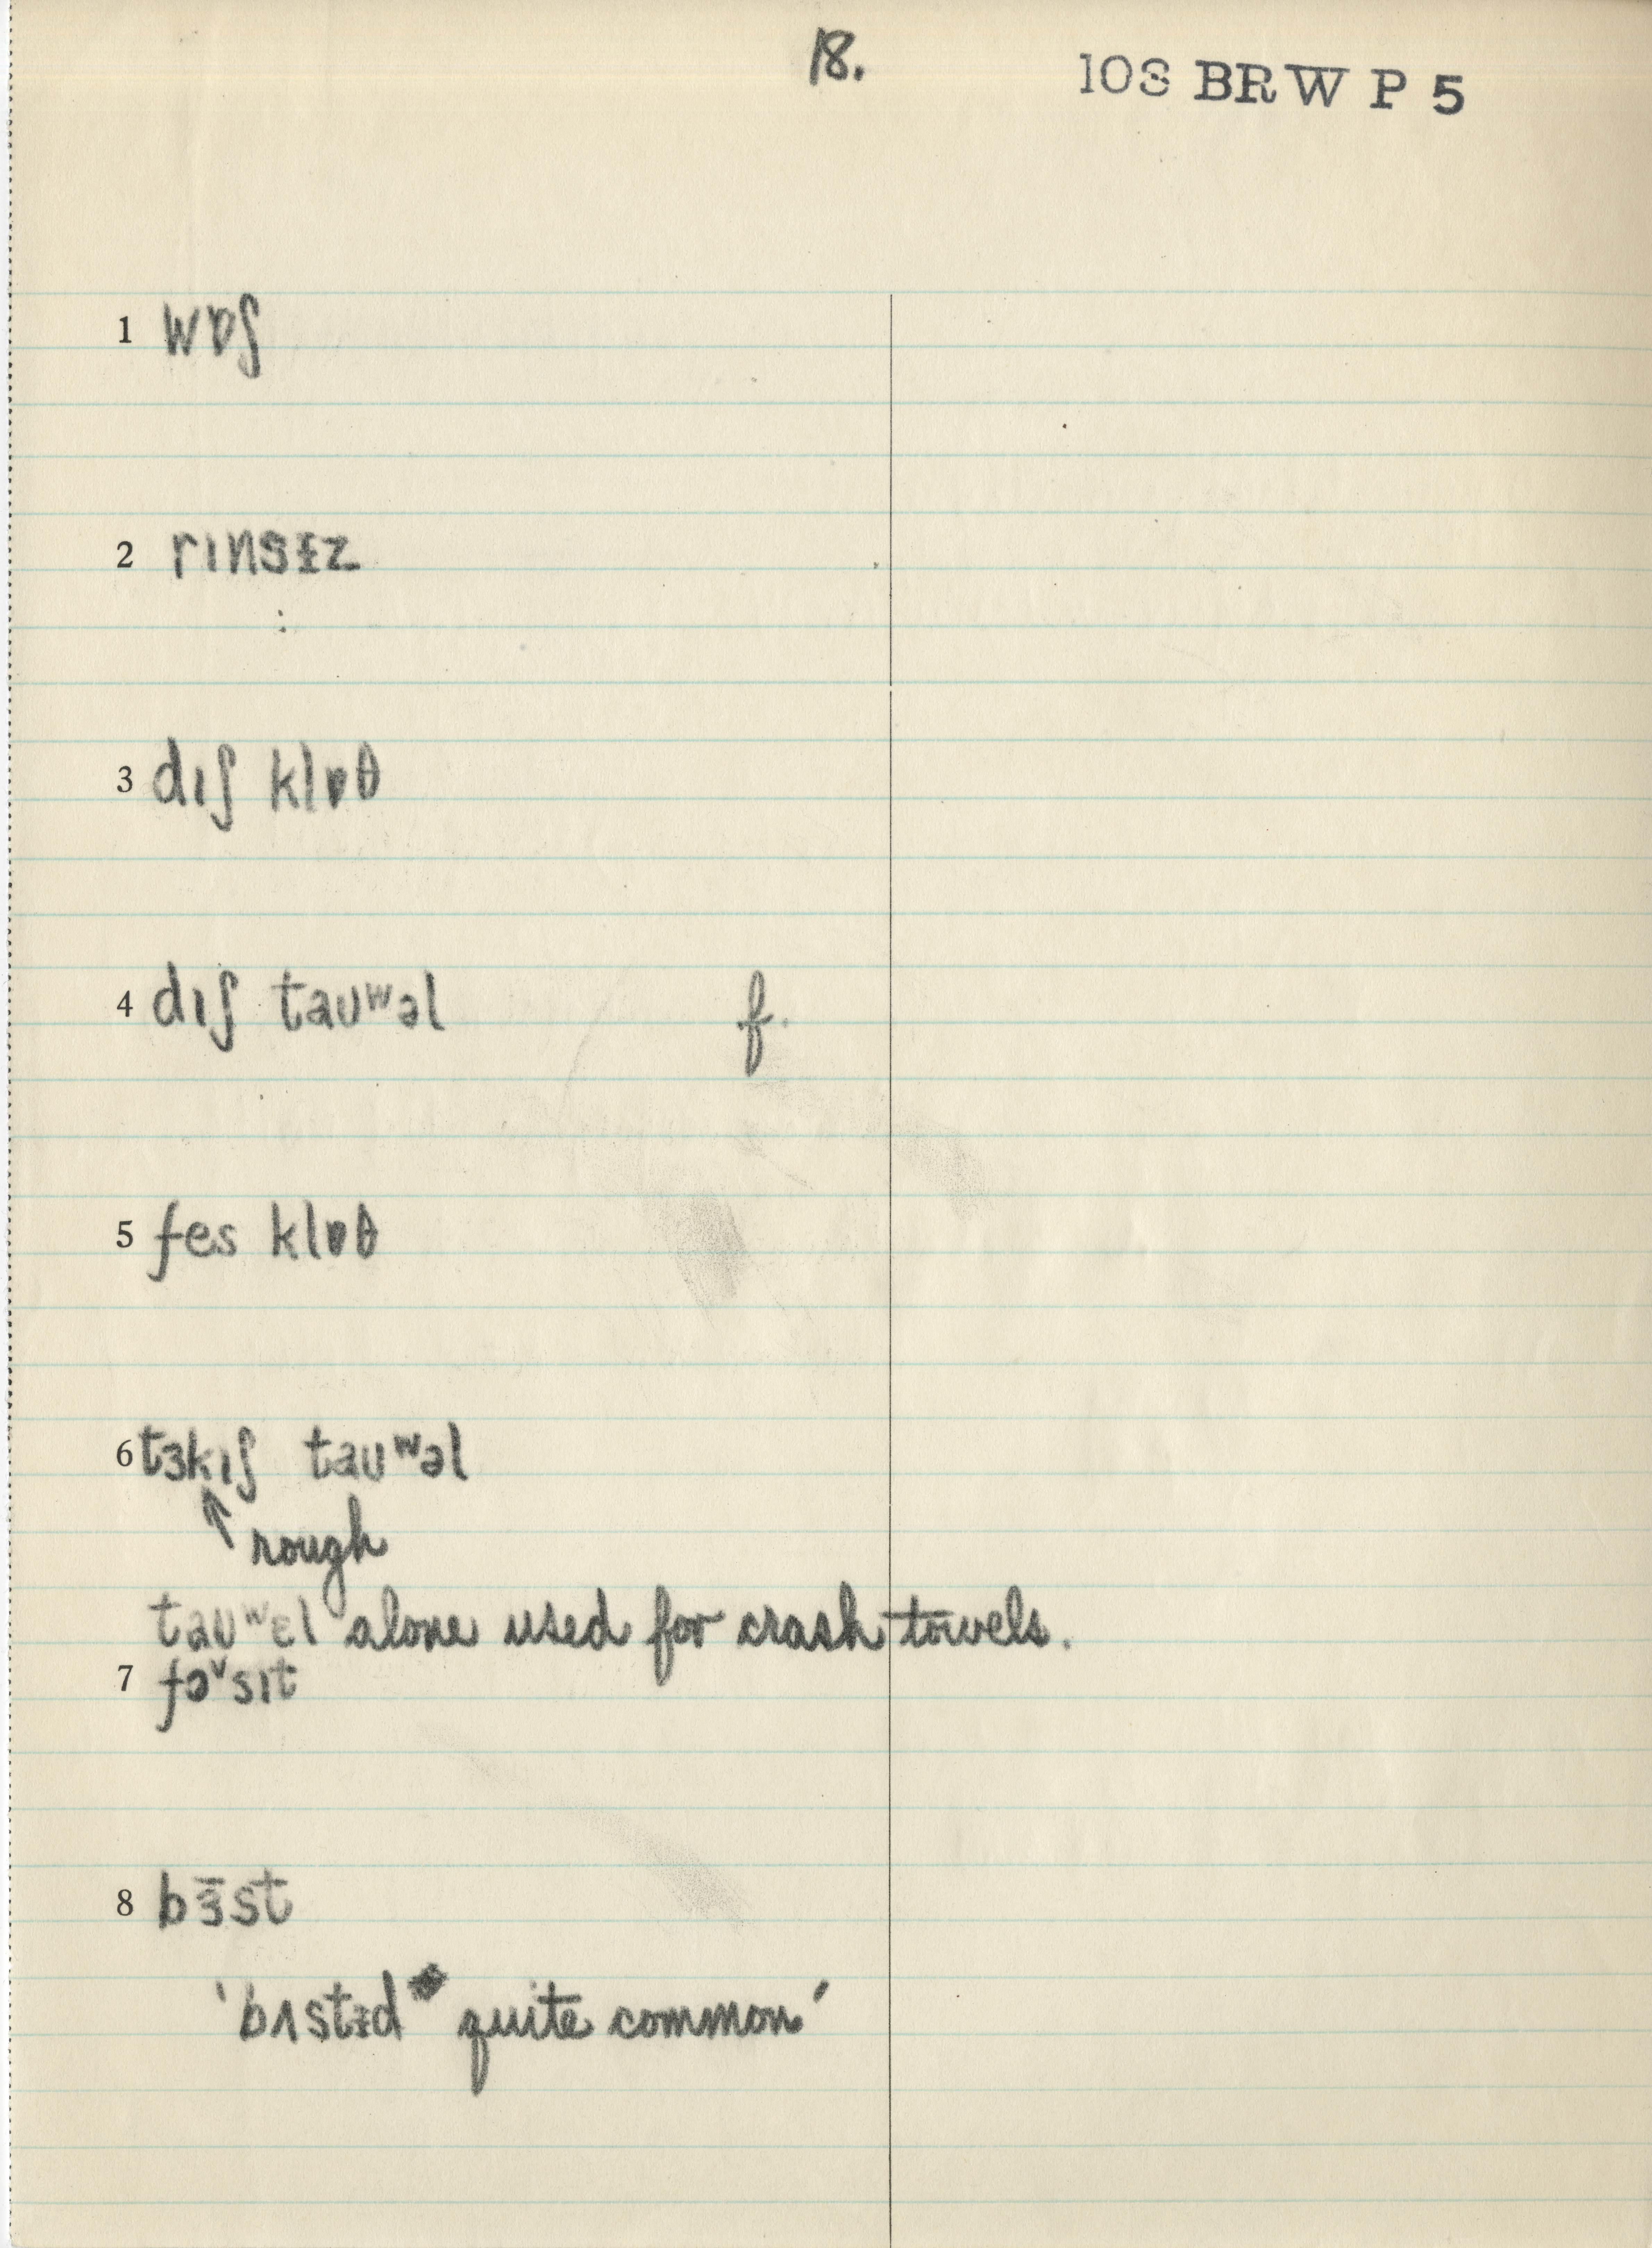 18.
108 BRW P 5
1 wɒʃ
2 rɪnsɨz
3 dɪʃ klɒθ
4 dɪʃ taʊʷəl f.
5 fes klɒθ
6 tɜkɪʃ taʊʷəl
↑ rough
taʊʷɛl alone used for crash towels.
7 fɔ˅sɪt
8 bɜ̄st
'bʌstɨd quite common'